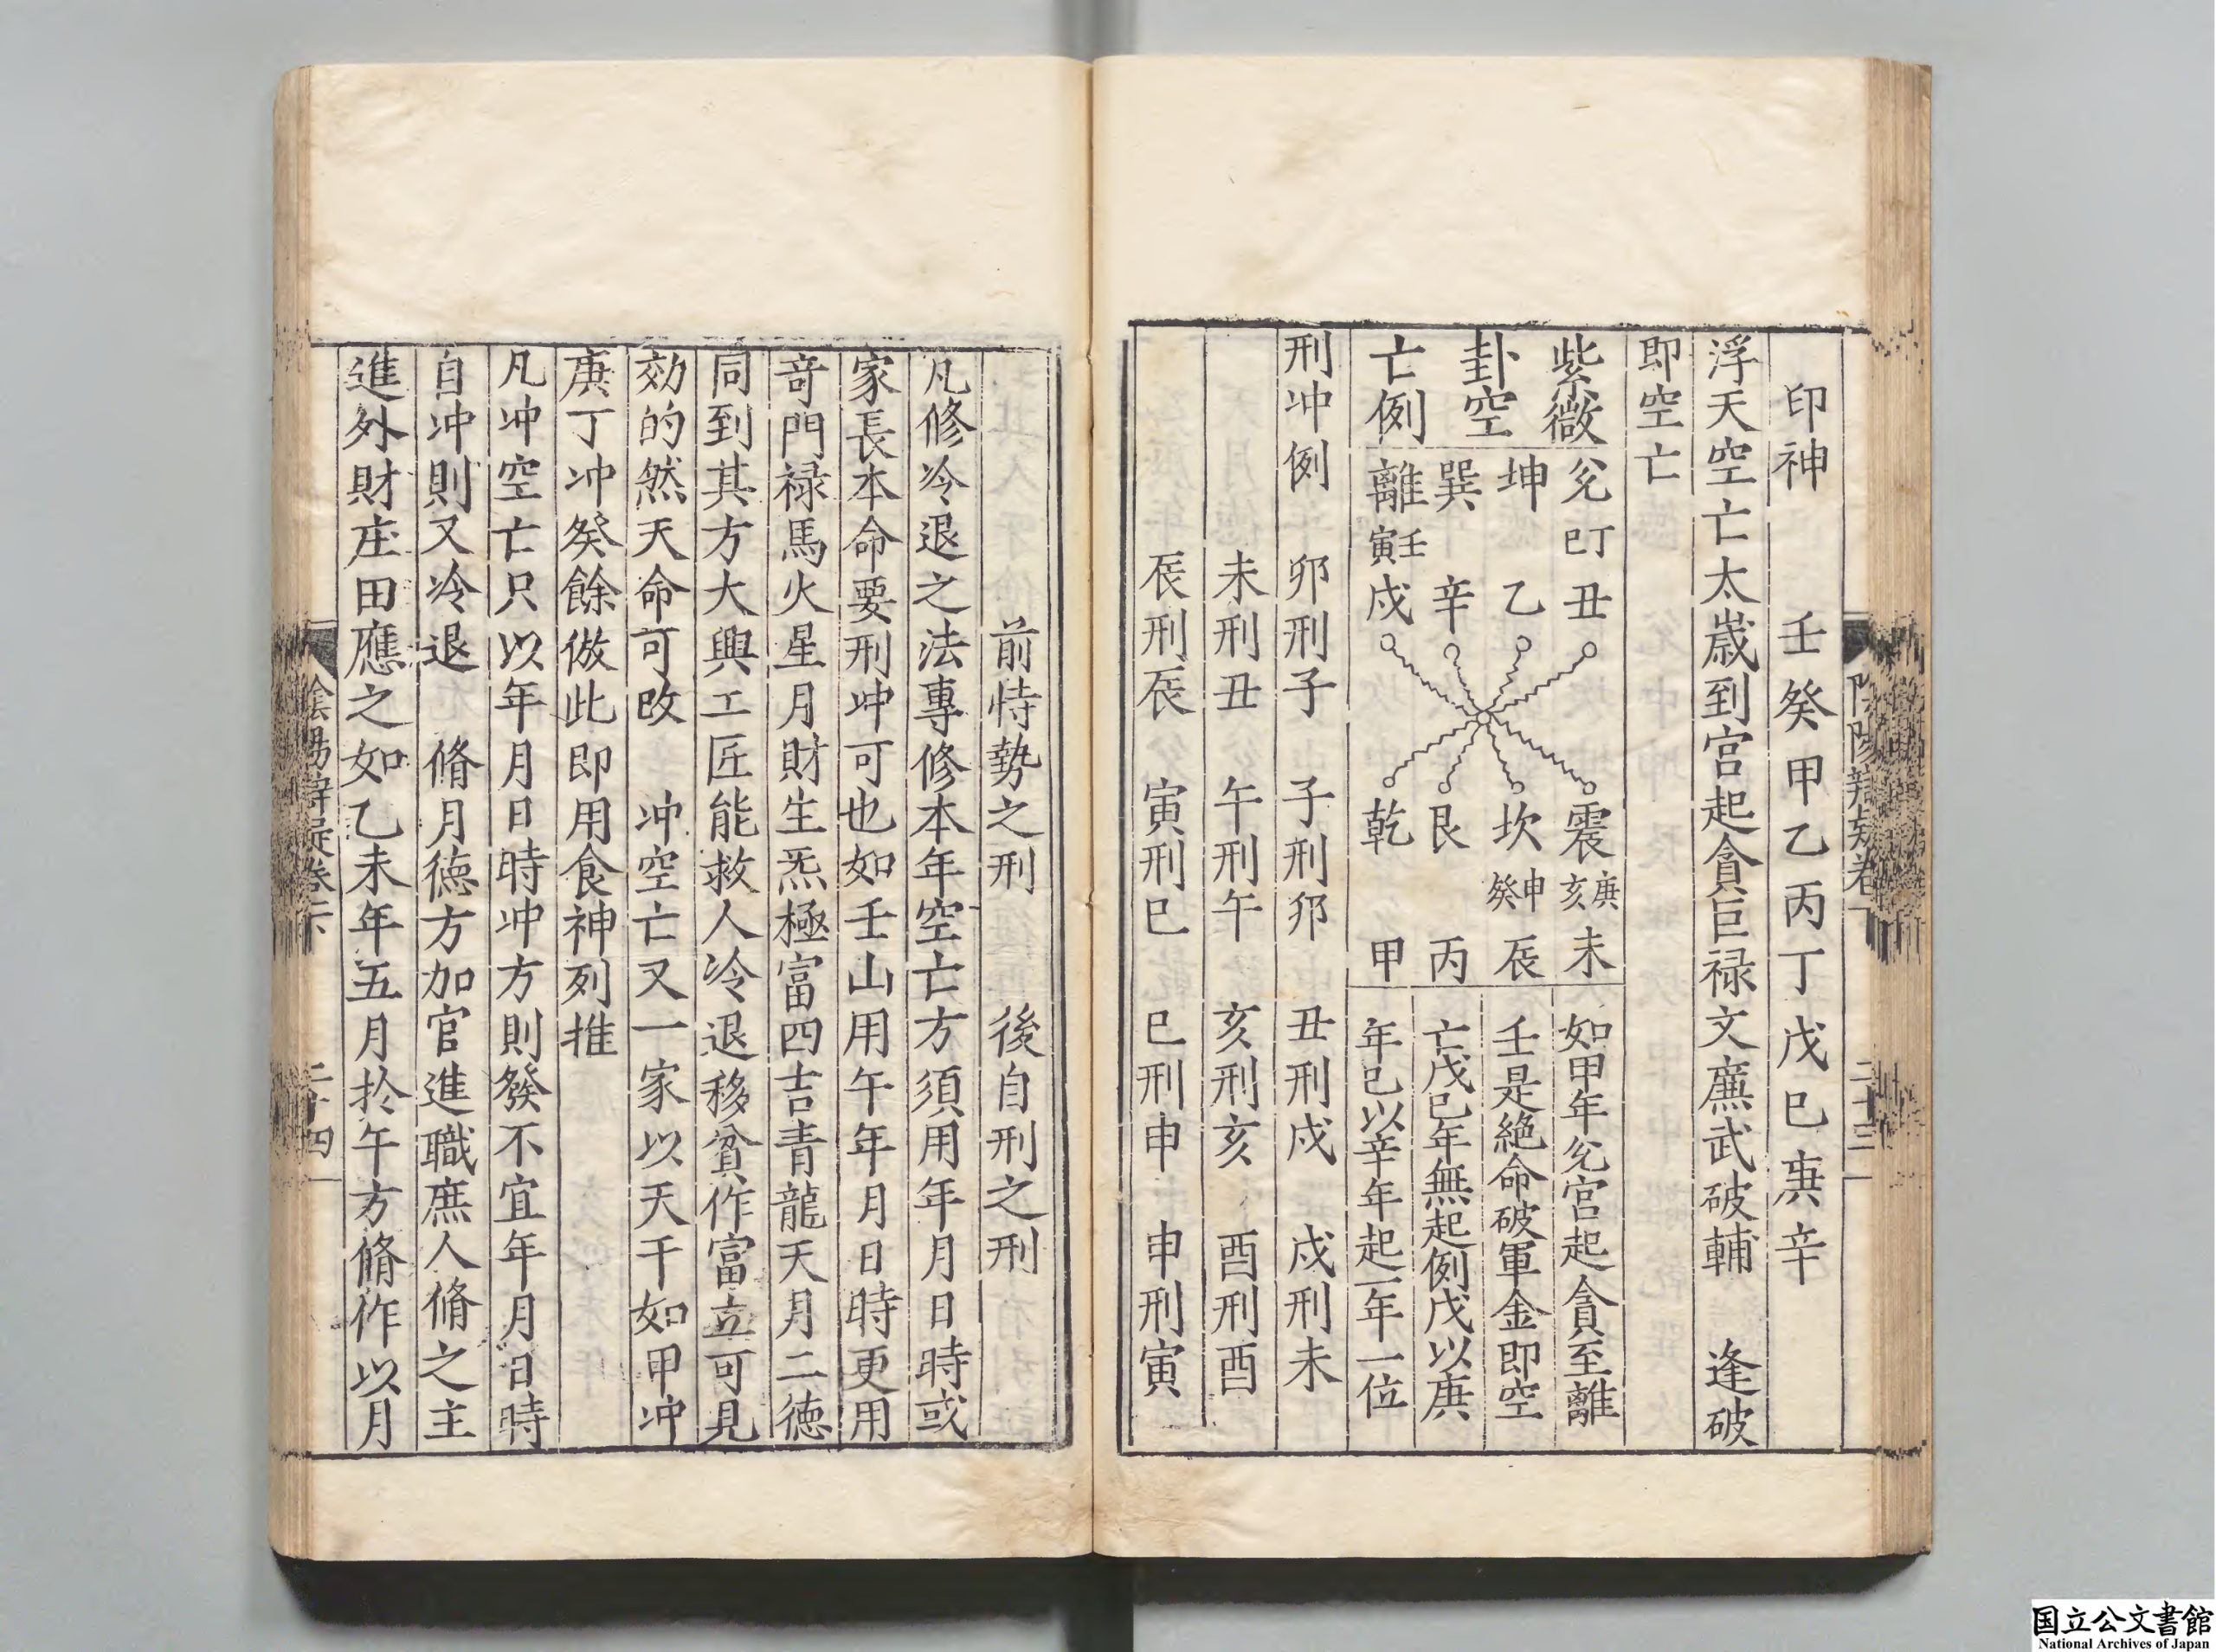 印神　壬癸甲乙丙丁戊巳庚辛
浮天空亡太歳到宫起貪巨禄文廉武破輔　逢破
即空亡
紫薇
卦空
亡例
兊 巳丁 丑
坤 乙
巽 辛
離 寅壬 戌
震 亥庚 未
坎 癸申 辰
艮 丙
乾 甲
如甲年兊宫起貪至離
壬是絶命破軍金即空
亡戊巳年無起例戊以庚
年巳以辛年起一年一位
刑冲例　卯刑子　子刑卯　丑刑戌　戌刑未
未刑丑　午刑午　亥刑亥　酉刑酉
辰刑辰　寅刑巳　巳刑申　申刑寅
前恃勢之刑　後自刑之刑
凡修冷退之法專修本年空亡方須用年月日時或
家長本命要刑冲可也如壬山用午年月日時更用
竒門禄馬火星月財生炁極富四吉青龍天月二徳
同到其方大興工匠能救人冷退移貧作富立可見
効的然天命可改　冲空亡又一家以天干如甲冲
庚丁冲癸餘倣此即用食神列推
凡冲空亡只以年月日時冲方則發不宜年月日時
自冲則又冷退　脩月徳方加官進職庶人脩之主
進外財庄田應之如乙未年五月於午方脩作以月
陰陽辯疑卷下　二十四